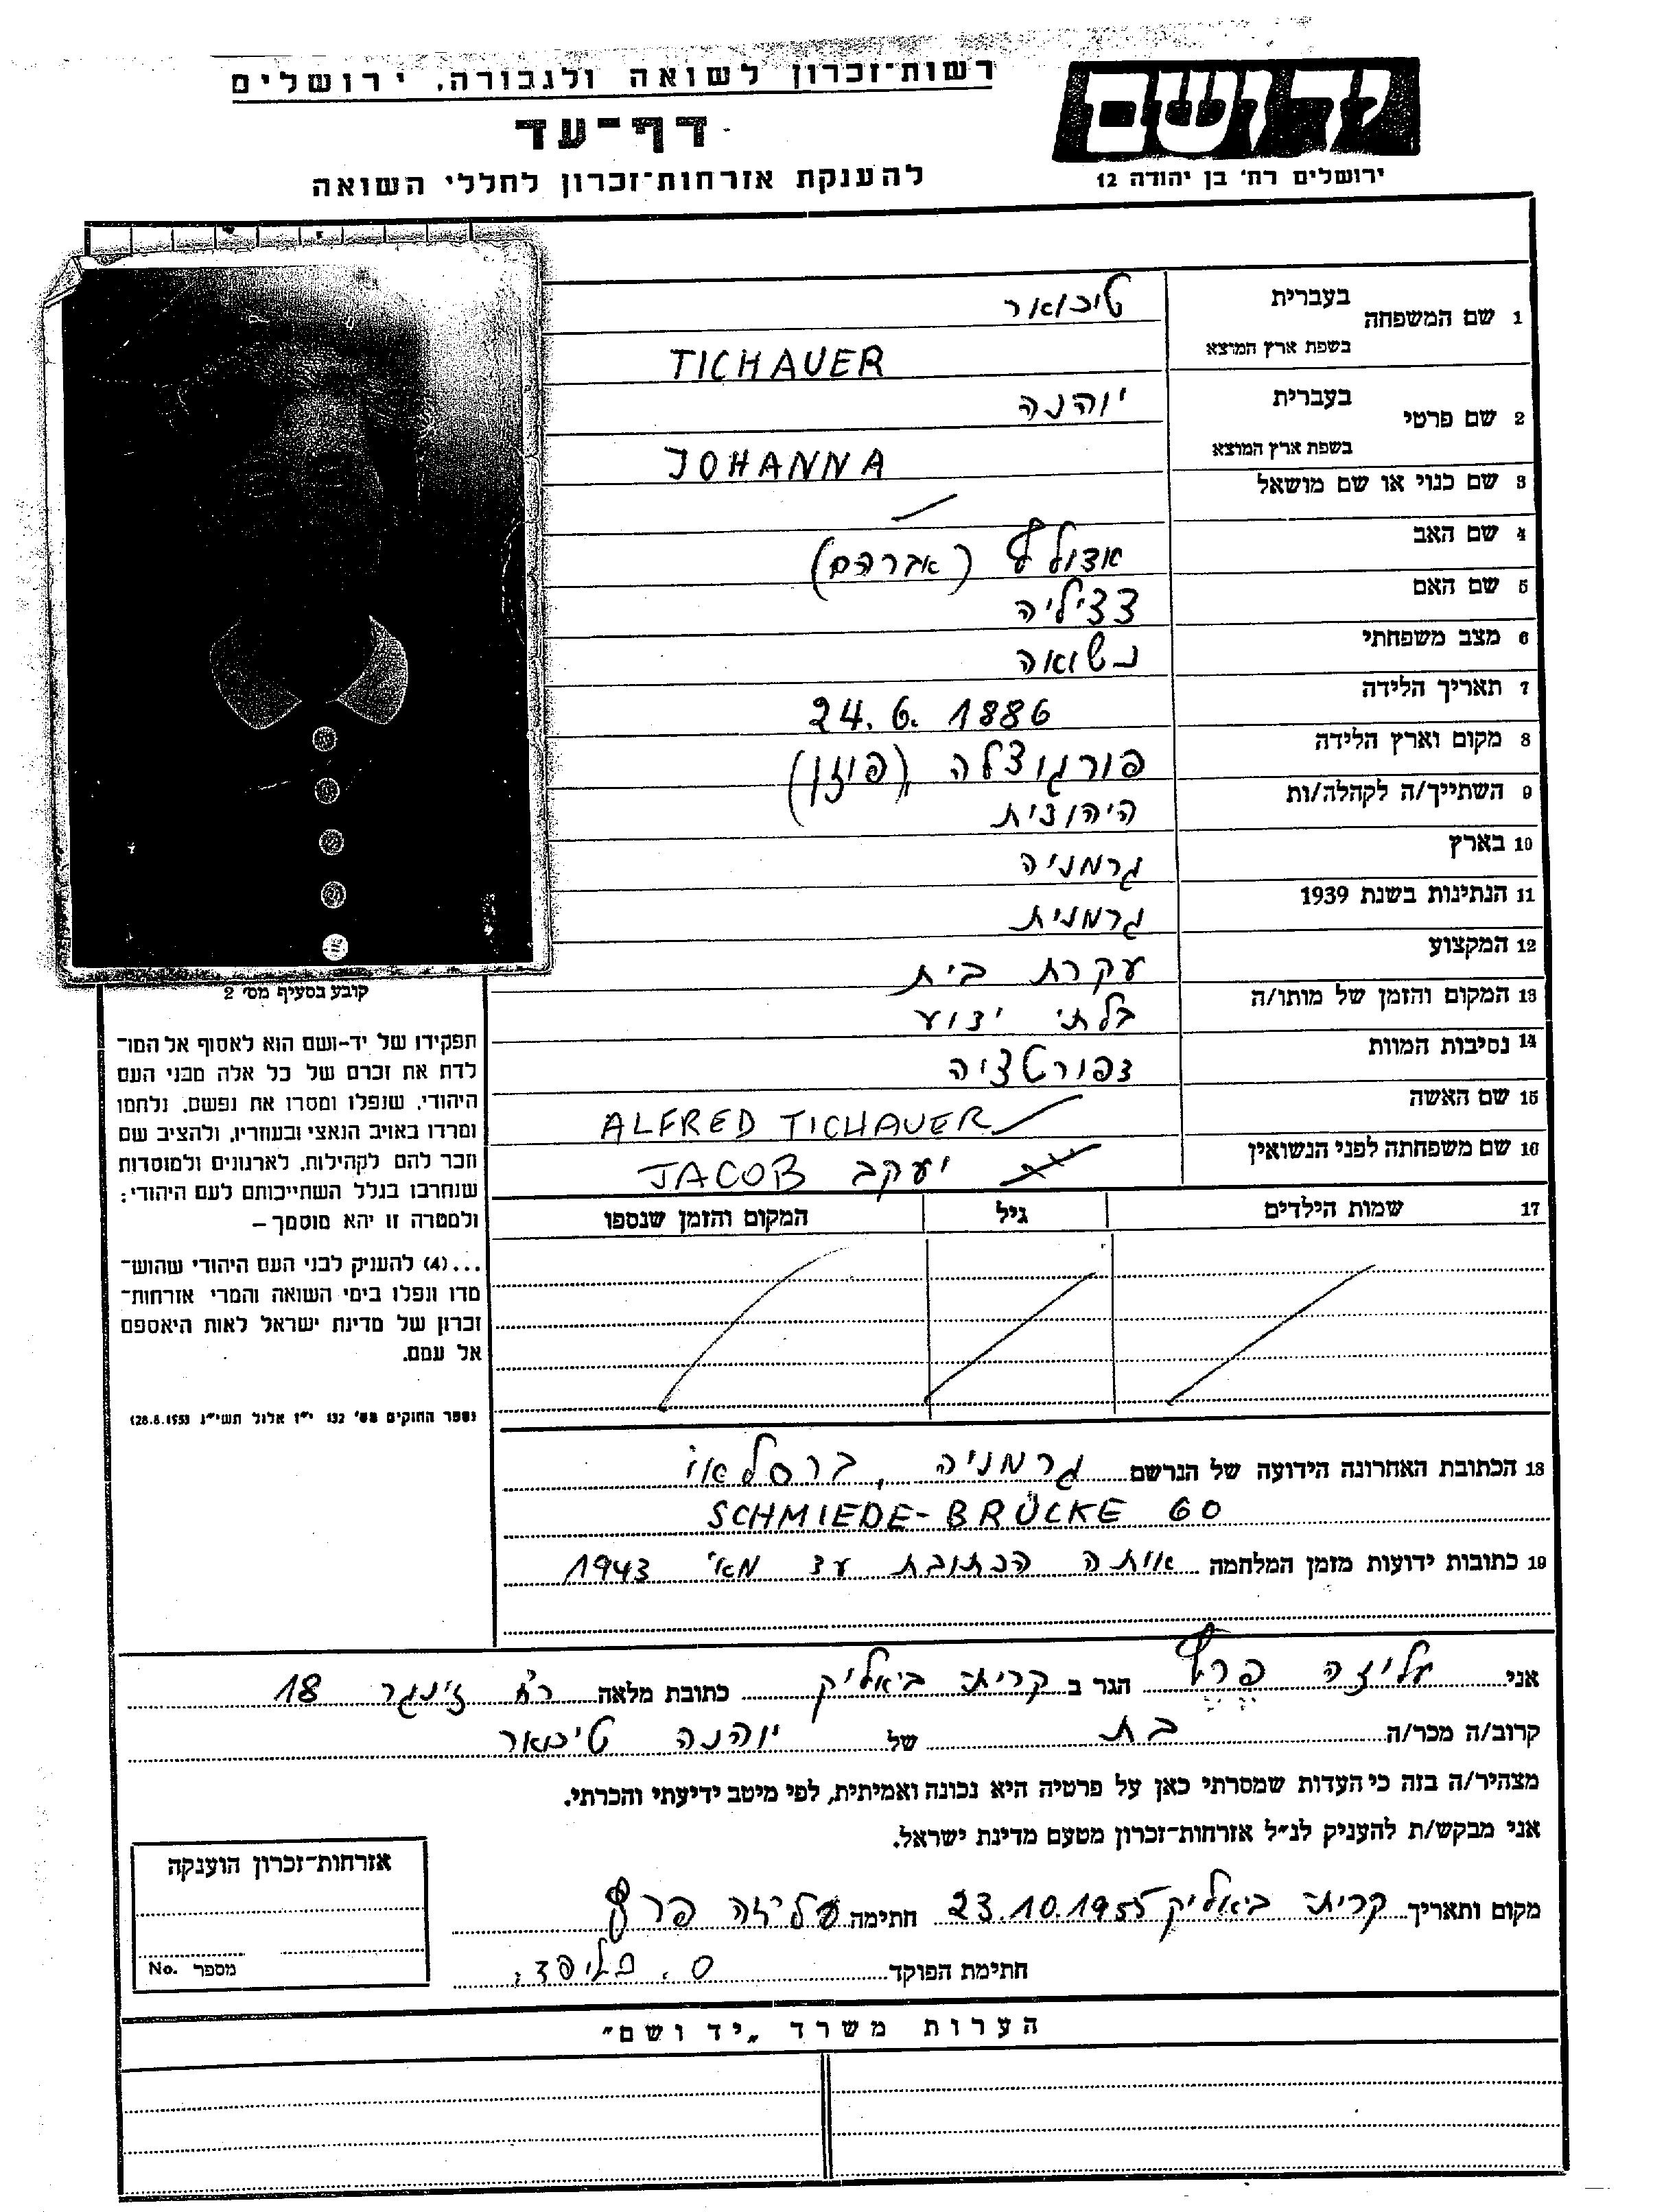 רשות־זכרון לשואה ולגבורה, ירושלים
ידושם
דף־עד
ירושלים רח' בן יהודה 12
להענקת אזרחות־זכרון לחללי השואה
1 שם המשפחה בעברית טיכואר
בשפת ארץ המוצא TICHAUER
2 שם פרטי בעברית יוהנה
בשפת ארץ המוצא JOHANNA
3 שם כנוי או שם מושאל
4 שם האב אדולף (אברהם)
5 שם האם צציליה
6 מצב משפחתי נשואה
7 תאריך הלידה 24.6.1886
8 מקום וארץ הלידה (פוזן)
9 השתייך/ה לקהלה/ות היהודית
10 בארץ גרמניה
11 הנתינות בשנת 1939 גרמנית
12 המקצוע עקרת בית
13 המקום והזמן של מותו/ה בלתי ידוע
14 נסיבות המוות דפורטציה
15 שם האשה ALFRED TICHAUER
16 שם משפחתה לפני הנשואין יעקב JACOB
17 שמות הילדים גיל המקום והזמן שנספו
קובע בסעיף מס' 2
תפקידו של יד-ושם הוא לאסוף אל המו־
לדת את זכרם של כל אלה מבני העם
היהודי, שנפלו ומסרו את נפשם, נלחמו
ומרדו באויב הנאצי ובעוזריו, ולהציב שם
וזכר להם לקהילות, לארגונים ולמוסדות
שנחרבו בגלל השתייכותם לעם היהודי;
ולמטרה זו יהא מוסמך –
...(4) להעניק לבני העם היהודי שהוש־
מדו ונפלו בימי השואה והמרי אזרחות־
זכרון של מדינת ישראל לאות היאספם
אל עמם.
(ספר החוקים מס' 132 י"ז אלול תשי"ג 28.8.1953)
18 הכתובת האחרונה הידועה של הנרשם גרמניה, ברסלאו
SCHMIEDE-BRÜCKE 60
19 כתובות ידועות מזמן המלחמה אותה הכתובת עד מאי 1943
אני עליזה פרץ הגר ב קרית ביאליק כתובת מלאה רח' זינגר 18
קרוב/ה מכר/ה בת של יוהנה טיכואר
מצהיר/ה בזה כי העדות שמסרתי כאן על פרטיה היא נכונה ואמיתית, לפי מיטב ידיעתי והכרתי.
אני מבקש/ת להעניק לנ"ל אזרחות־זכרון מטעם מדינת ישראל.
מקום ותאריך קרית ביאליק 23.10.1955 חתימה עליזה פרץ
חתימת הפוקד
אזרחות־זכרון הוענקה
מספר No.
הערות משרד „יד ושם"